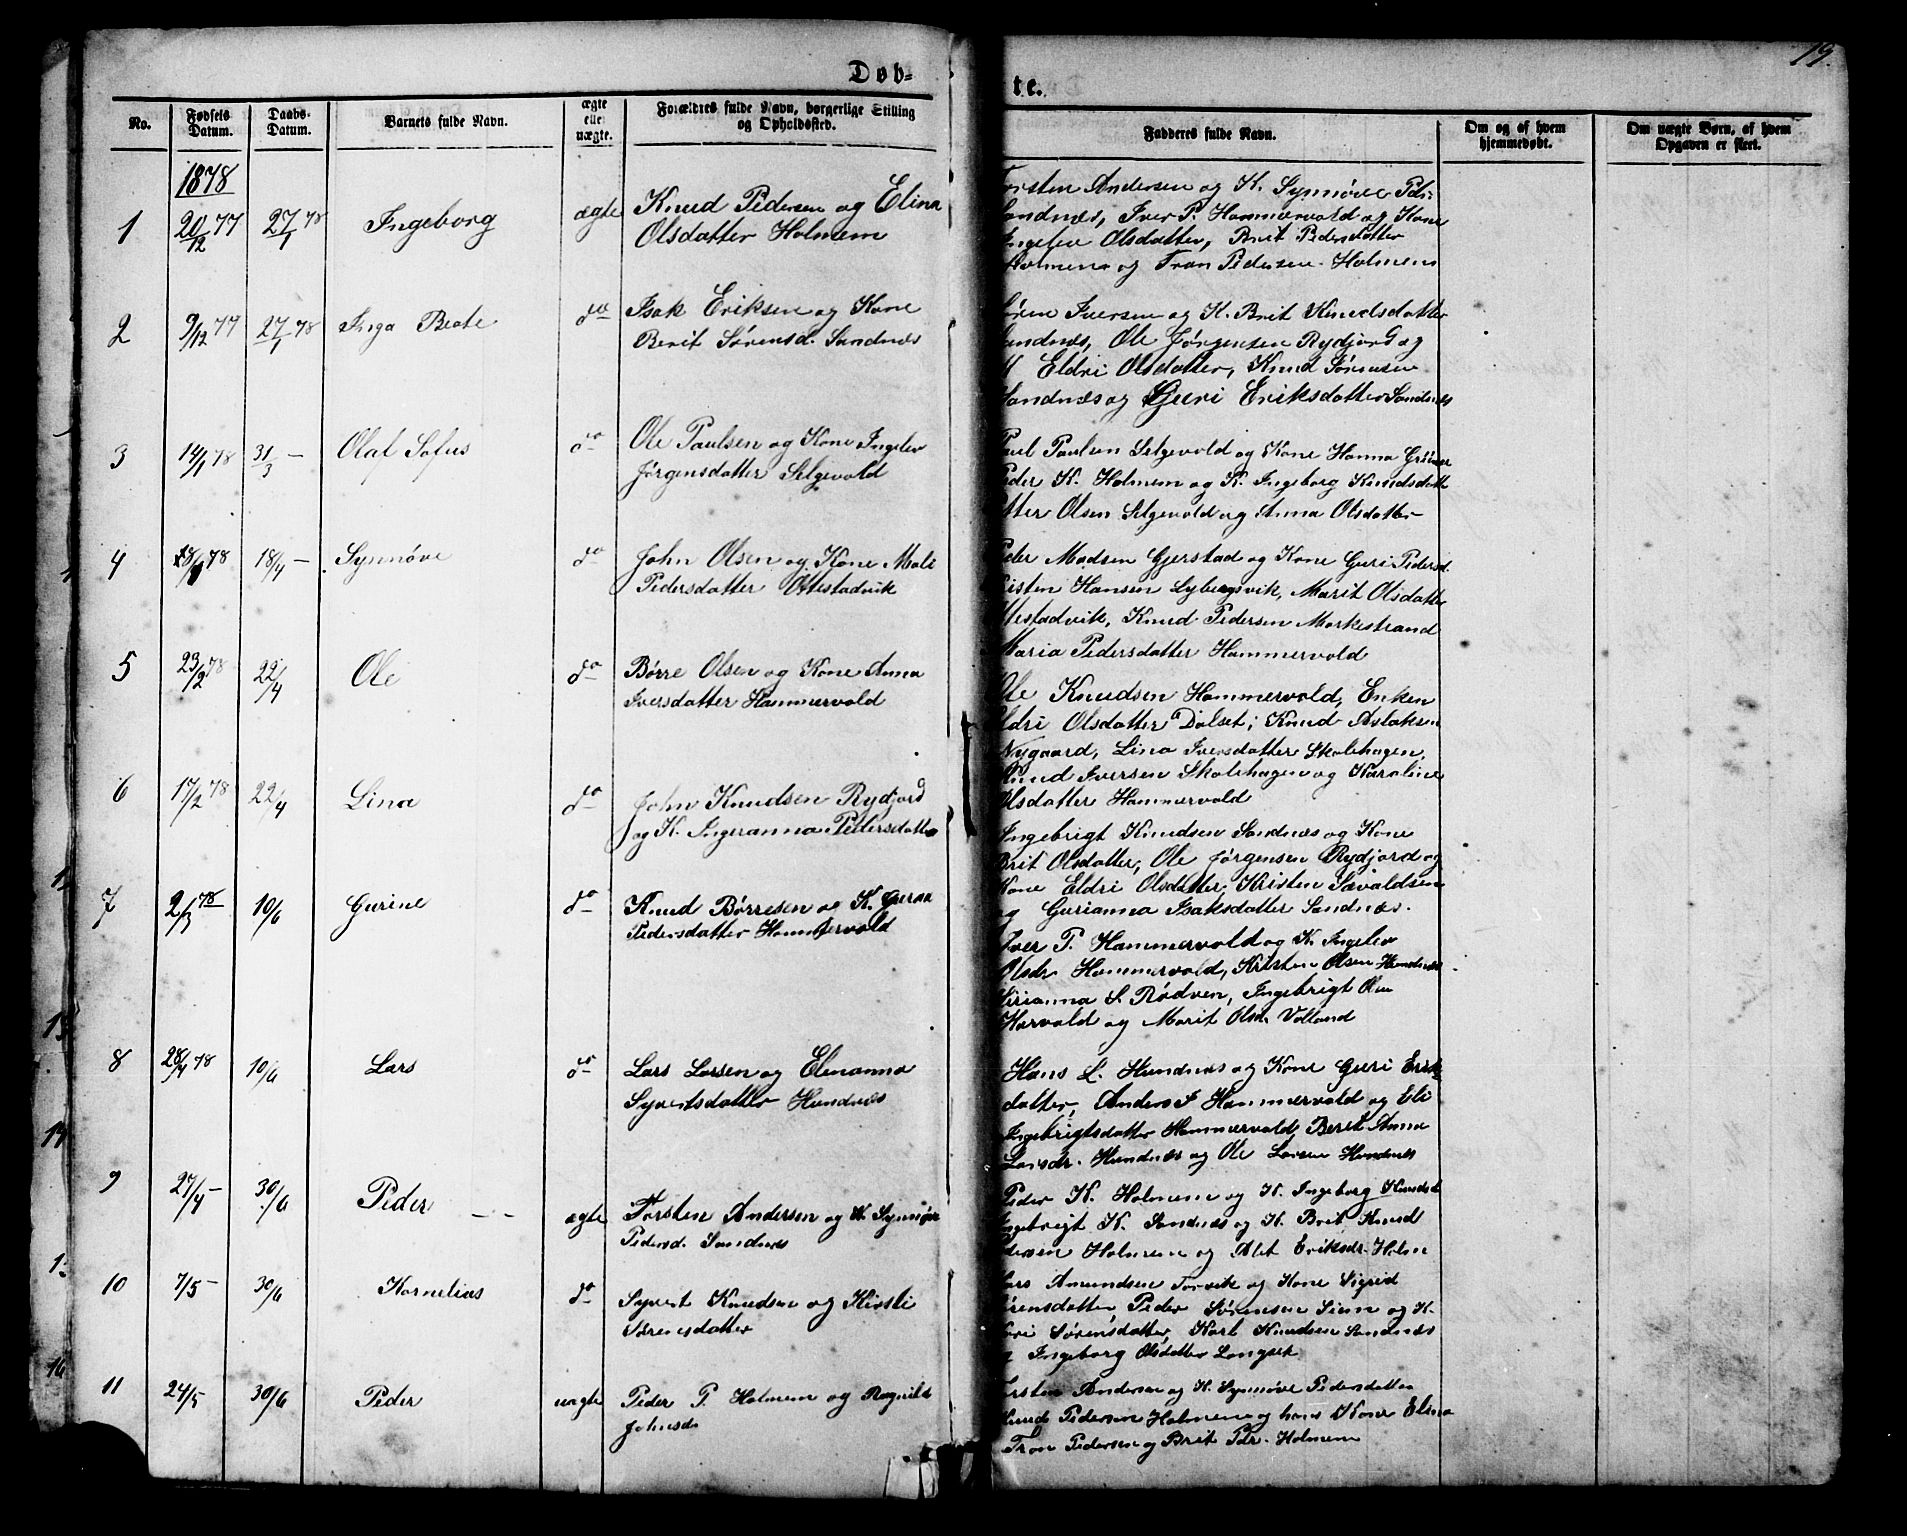 19.
Døb-
te.
No.
Fødsels Datum.
Daabs-Datum.
Barnets fulde Navn.
ægte eller uægte.
Forældres fulde Navn, borgerlige Stilling og Opholdssted.
Fadderes fulde Navn.
Om og af hvem hjemmedøbt.
Om uægte Børn, af hvem Opgaven er skeet.
1878
1 20/12 77 27/1 78 Ingeborg ægte Knud Pedersen og Elina
Olsdatter Holmem
Torsten Andersen og K. Synnøve Pdr.
Sandnæs, Iver P. Hammervold og Kone
Ingelev Olsdatter, Brit Pedersdatter
Holmem og Tron Pedersen Holmem
2 9/12 77 27/1 78 Inga Beate do Isak Eriksen og Kone
Berit Sørensd. Sandnæs
Søren Iversen og K. Brit Knudsdatter
Sandnæs, Ole Jørgensen Rydjord og
K Eldri Olsdatter, Knud Sørensen
Sandnæs og Guri Eriksdatter Sandnæs
3 14/1 78 31/3 – Olaf Sofus do Ole Paulsen og Kone Ingelev
Jørgensdatter Selgevold
Paul Paulsen Selgevold og Kone Hanna
Peder K. Holmem og K. Ingeborg Knudsdatt
Petter Olsen Selgevold og Anna Olsdatter
4 78 18/4 – Synnøve do John Olsen og Kone Mali
Pedersdatter Ottestadvik
Peder Madsen Gjerstad og Kone Guri Pedersd.
Kristen Hansen Lybergsvik, Marit Olsdatter
Ottestadvik, Knud Pedersen Morkestrand
Maria Pedersdatter Hammervold
5 23/2 78 22/4 Ole do Børre Olsen og Kone Anna
Iversdatter Hammervold
Ole Knudsen Hammervold, Enken
Eldri Olsdatter Dalset; Knud Aslaksen
Nygaard, Lina Iversdatter Skolehagen,
Knud Iversen Skolehagen og Karoline
Olsdatter Hammervold
6 17/2 78 22/4 Lina do John Knudsen Rydjord
og K. Ingeranna Pedersdatter
Ingebrigt Knudsen Sandnæs og Kone
Brit Olsdatter, Ole Jørgensen Rydjord og
Kone Eldri Olsdatter, Kristen Sævaldsen
og Gurianna Isaksdatter Sandnæs.
7 2/3 78 10/6 Gurine do Knud Børresen og K.
Pedersdatter Hammervold
Iver P. Hammervold og K. Ingelev
Olsdr. Hammervold, Kristen Olsen Hundnæs
Sirianna S. Rødven, Ingebrigt Olsen
Horvald og Marit Olsdr. Volland
8 28/4 78 10/6 Lars do Lars Larsen og Elenanna
Syvertsdatter Hundnæs
Hans L. Hundnæs og Kone Guri Eriks
datter, Anders I Hammervold og Eli
Ingebrigtsdatter Hammervold, Berit Anna
Larsdr. Hundnæs og Ole Larsen Hundnæs
9 27/4 – 30/6 Peder – – ægte Torsten Andersen og K Synnøve
Pedersd. Sandnæs
Peder K. Holmem og K. Ingeborg Knudsd
Ingebrigt K. Sandnæs og K. Brit Knud
Pedersen Holmem og Alet Eriksdr. Holm
10 7/5 – 30/6 Kornelius do Syvert Knudsen og Kirsti
Sørensdatter
Lars Amundsen Torvik og Kone Sigrid
Sørensdatter, Peder Sørensen Siem og K.
Guri Sørensdatter, Karl Knudsen Sandnæs
og Ingeborg Olsdatter Langset
11 24/5 30/6 Peder uægte Peder P. Holmem og Ragnild
Johnsd.
Torsten Andersen og K. Synnøve Pedersdatter
Knud Pedersen Holmem og hans Kone Elina
Tron Pedersen og Brit Pdr. Holmem